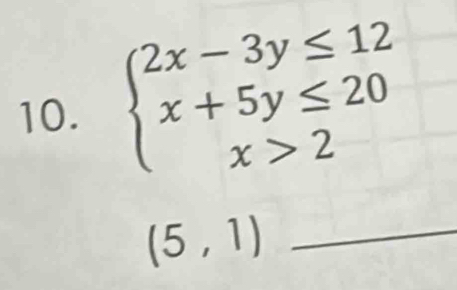 10. { 2x − 3y ≤ 12
x + 5y ≤ 20
x > 2
(5 , 1) ______